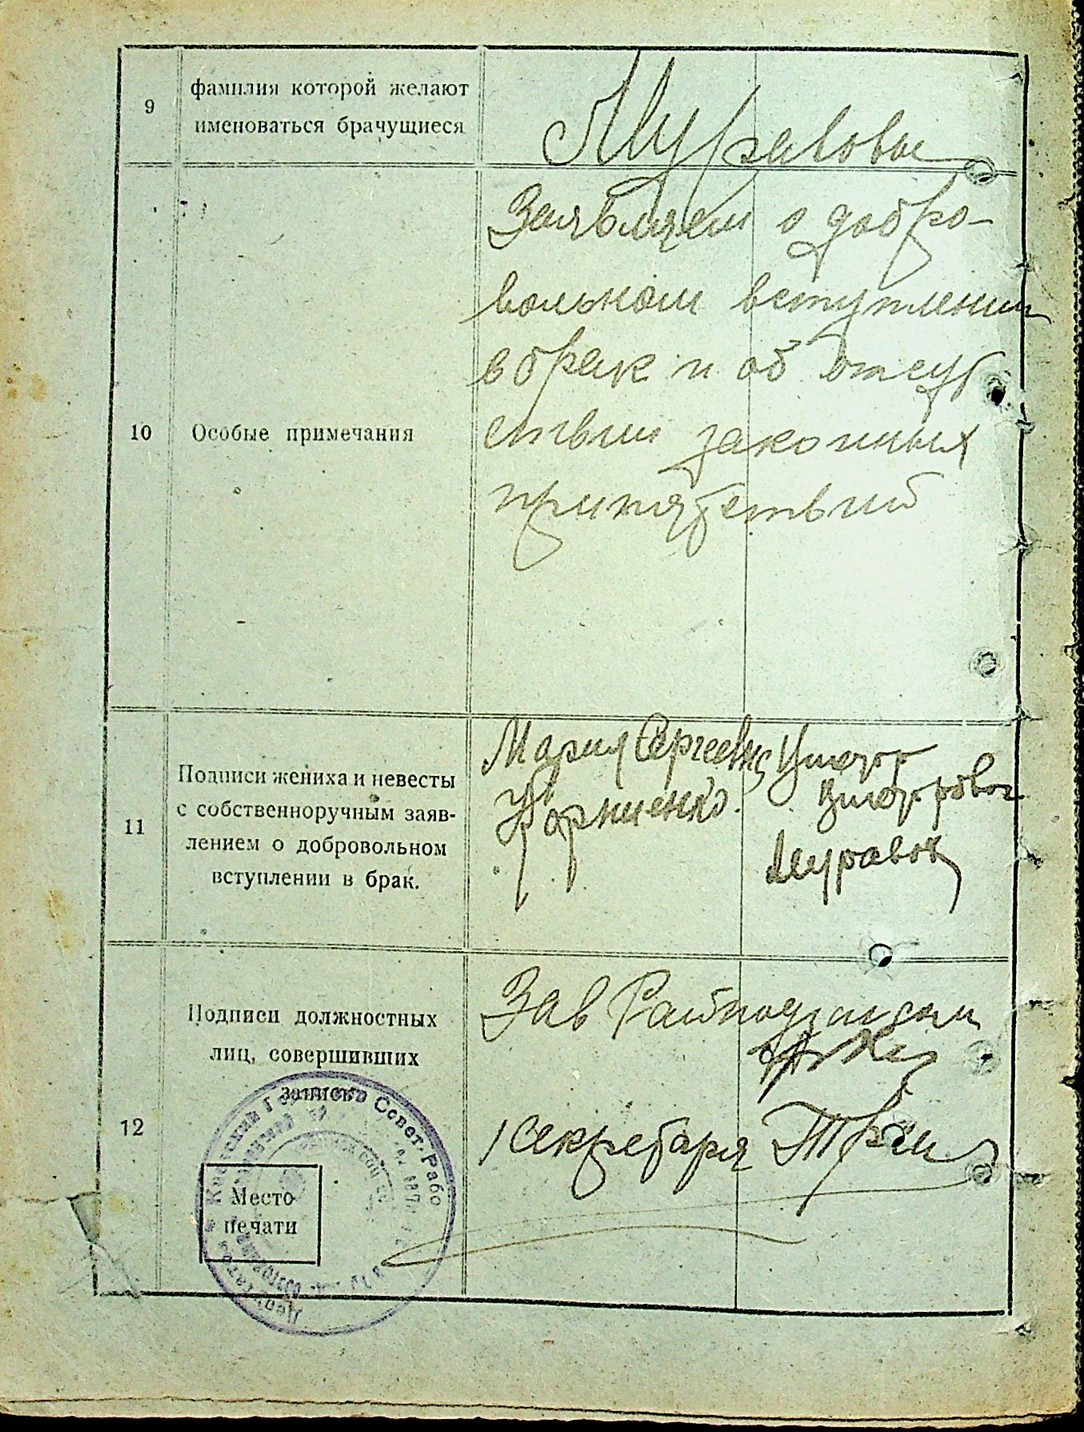 9
фамилия которой желают
именоваться брачущиеся
Муравовы
10
Особые примечания
Заявляем о добро-
вольном вступлении
в брак и об отсут
ствии законных
припятствий
11
Подписи жениха и невесты
с собственноручным заяв-
лением о добровольном
вступлении в брак.
Мария Сергеевна
Корниенко.
Муравов
12
Подписи должностных
лиц, совершивших
запись
Место
печати
Зав
секретаря
Совет. Рабо